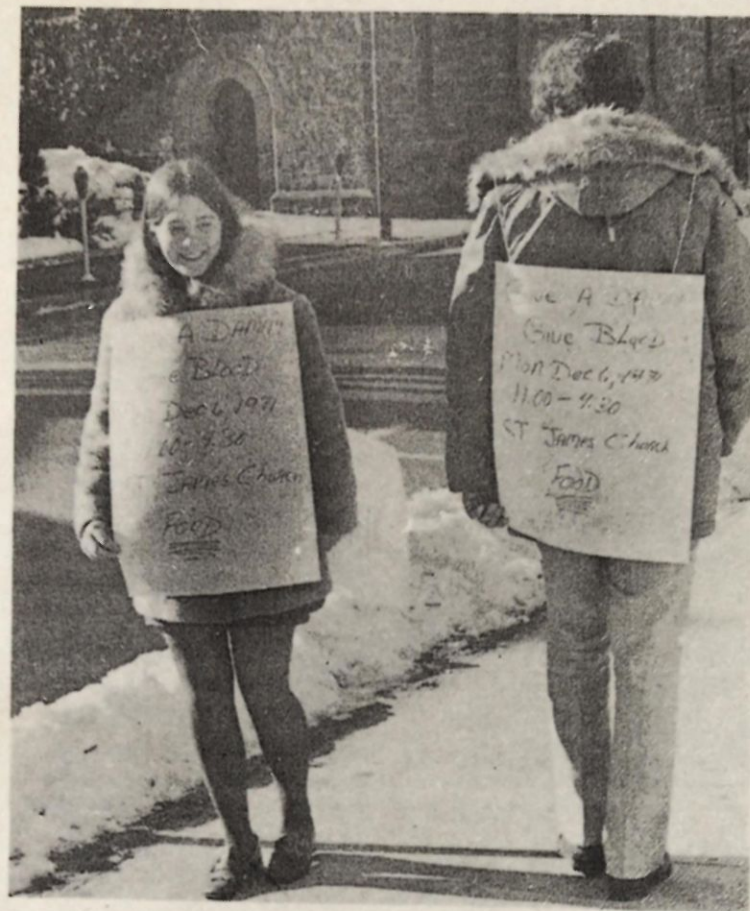 A DAMN
e Blood
Dec 6, 1971
00-4:30
T James Church
FOOD
Give A DAMN
Give Blood
Mon Dec 6, 1971
11:00-4:30
ST James Church
FOOD